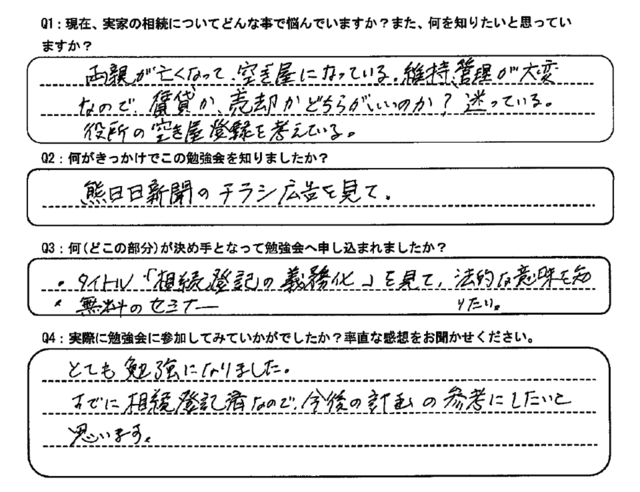 Q1：現在、実家の相続についてどんな事で悩んでいますか？また、何を知りたいと思ってい
ますか？
両親が亡くなって、空き屋になっている。維持、管理が大変
なので、賃貸か、売却かどちらがいいのか？迷っている。
役所の空き屋登録を考えている。
Q2：何がきっかけでこの勉強会を知りましたか？
熊日日新聞のチラシ広告を見て。
Q3：何(どこの部分)が決め手となって勉強会へ申し込まれましたか？
・タイトル「相続登記の義務化」を見て、法的な意味を知
りたい。
・無料のセミナー
Q4：実際に勉強会に参加してみていかがでしたか？率直な感想をお聞かせください。
とても勉強になりました。
すでに相続登記済なので、今後の計画の参考にしたいと
思います。